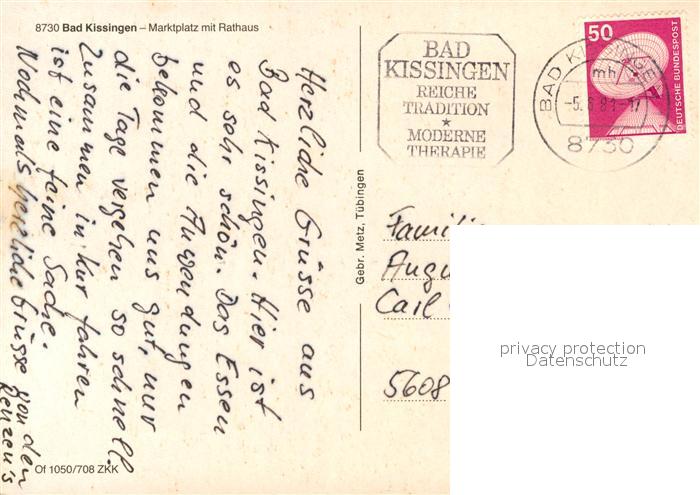 8730 Bad Kissingen – Marktplatz mit Rathaus
Herzliche Grüsse aus
Bad Kissingen. Hier ist
es sehr schön. Das Essen
und die Anwendungen
bekommen uns gut, nur
die Tage vergehen so schnell
Zusammen in Kur fahren
ist eine feine Sache.
Nochmals herzliche Grüsse von den
Of 1050/708 ZKK
Gebr. Metz, Tübingen
BAD
KISSINGEN
REICHE
TRADITION
★
MODERNE
THERAPIE
BAD KISSINGEN
mh
8730
50
DEUTSCHE BUNDESPOST
Familie
Augu
Carl
5608
privacy protection
Datenschutz